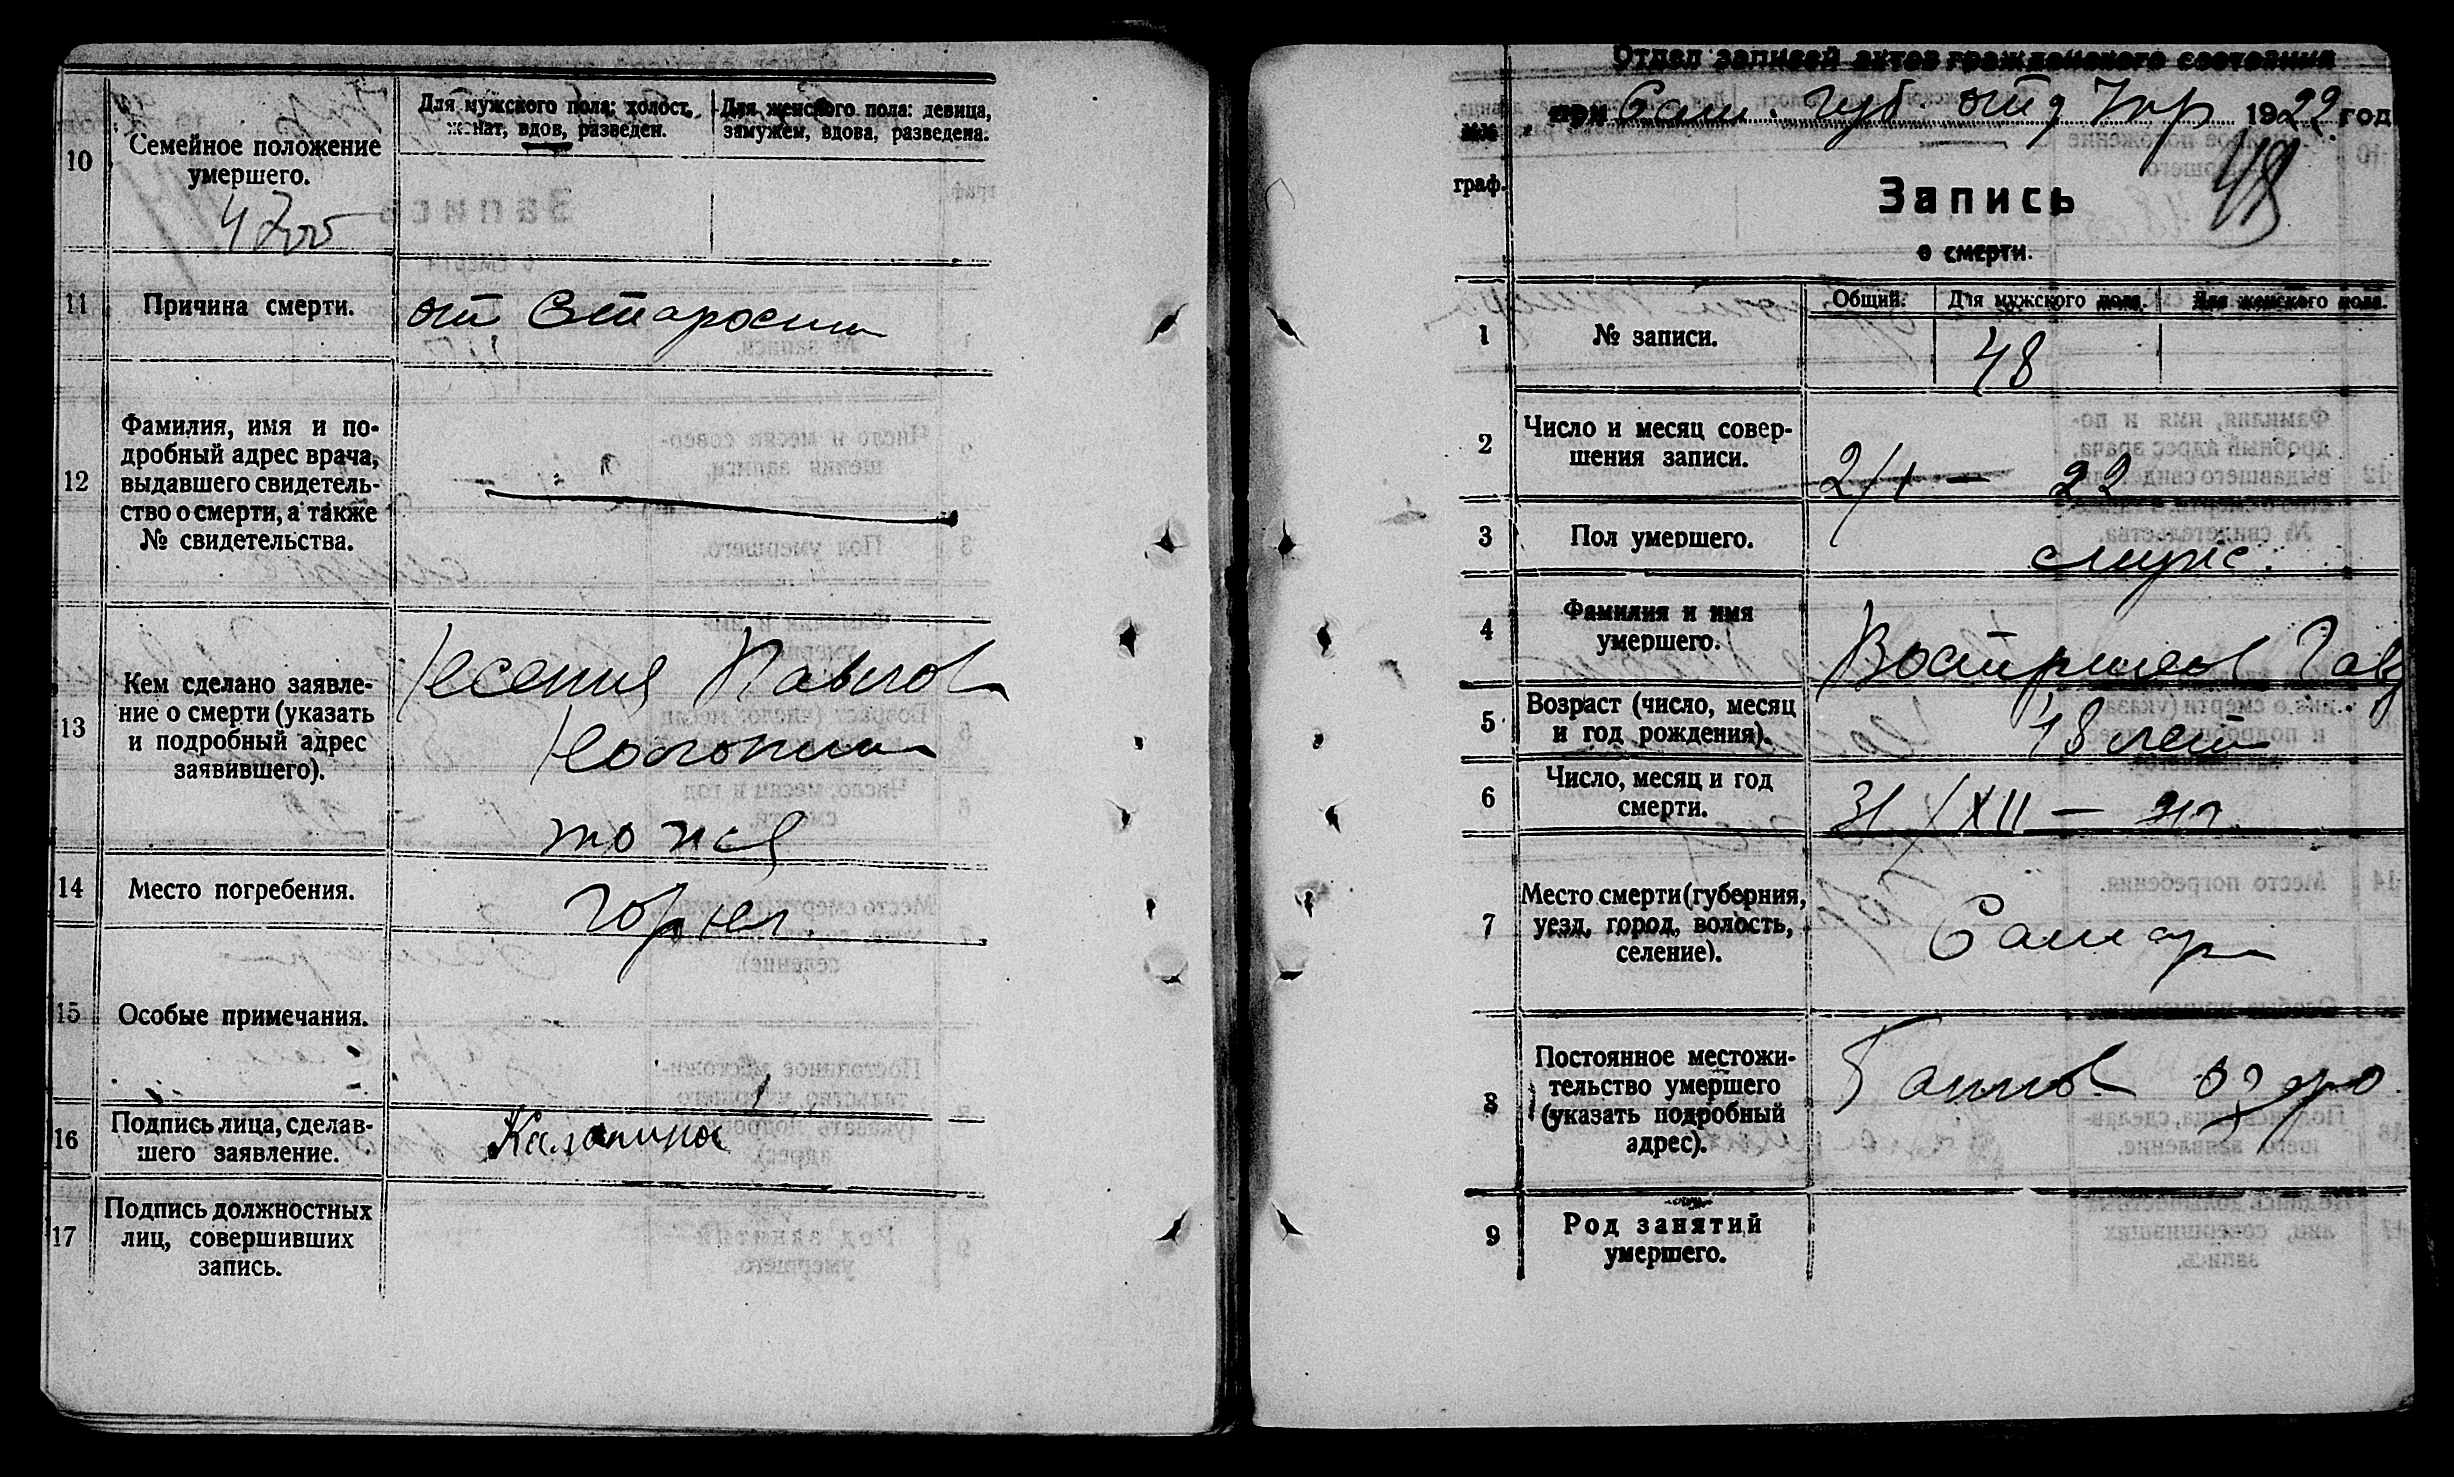 10
Семейное положение
умершего.
Для мужского пола: холост,
женат, вдов, разведен.
Для женского пола: девица,
замужем, вдова, разведена.
11
Причина смерти.
от Старости
12
Фамилия, имя и по-
дробный адрес врача,
выдавшего свидетель-
ство о смерти, а также
№ свидетельства.
13
Кем сделано заявле-
ние о смерти (указать
и подробный адрес
заявившего).
Ксения Павлов
14
Место погребения.
15
Особые примечания.
16
Подпись лица, сделав-
шего заявление.
17
Подпись должностных
лиц, совершивших
запись.
Отдел записей актов гражданского состояния
при Сам. Губ. отд Упр 1922 год
№№
граф.
Запись
о смерти.
48
1
№ записи.
Общий.
Для мужского пола.
Для женского пола.
48
2
Число и месяц совер-
шения записи.
2/I — 22
3
Пол умершего.
муж.
4
Фамилия и имя
умершего.
5
Возраст (число, месяц
и год рождения).
лет
6
Число, месяц и год
смерти.
31/XII —
7
Место смерти (губерния,
уезд, город, волость,
селение).
Самар
8
Постоянное местожи-
тельство умершего
(указать подробный
адрес).
9
Род занятий
умершего.